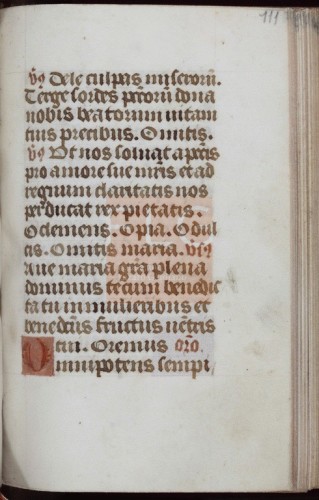 111
v̄9 Dele culpas miseroꝝ.
Terge sordes pctōꝝ dona
nobis beatorum vitam
tuis precibus. O mitis.
v̄9 Ut nos soluat a pctīs
pro amore sue mrīs et ad
regnum claritatis nos
perducat rex pietatis.
O clemens. O pia. O dul
cis. O mitis maria. v̄s9
Aue maria gr̄a plena
dominus tecum benedic
ta tu in mulieribus et
benedctūs fructus uētris
tui. Oremus or̄o.
Omnipotens sempi